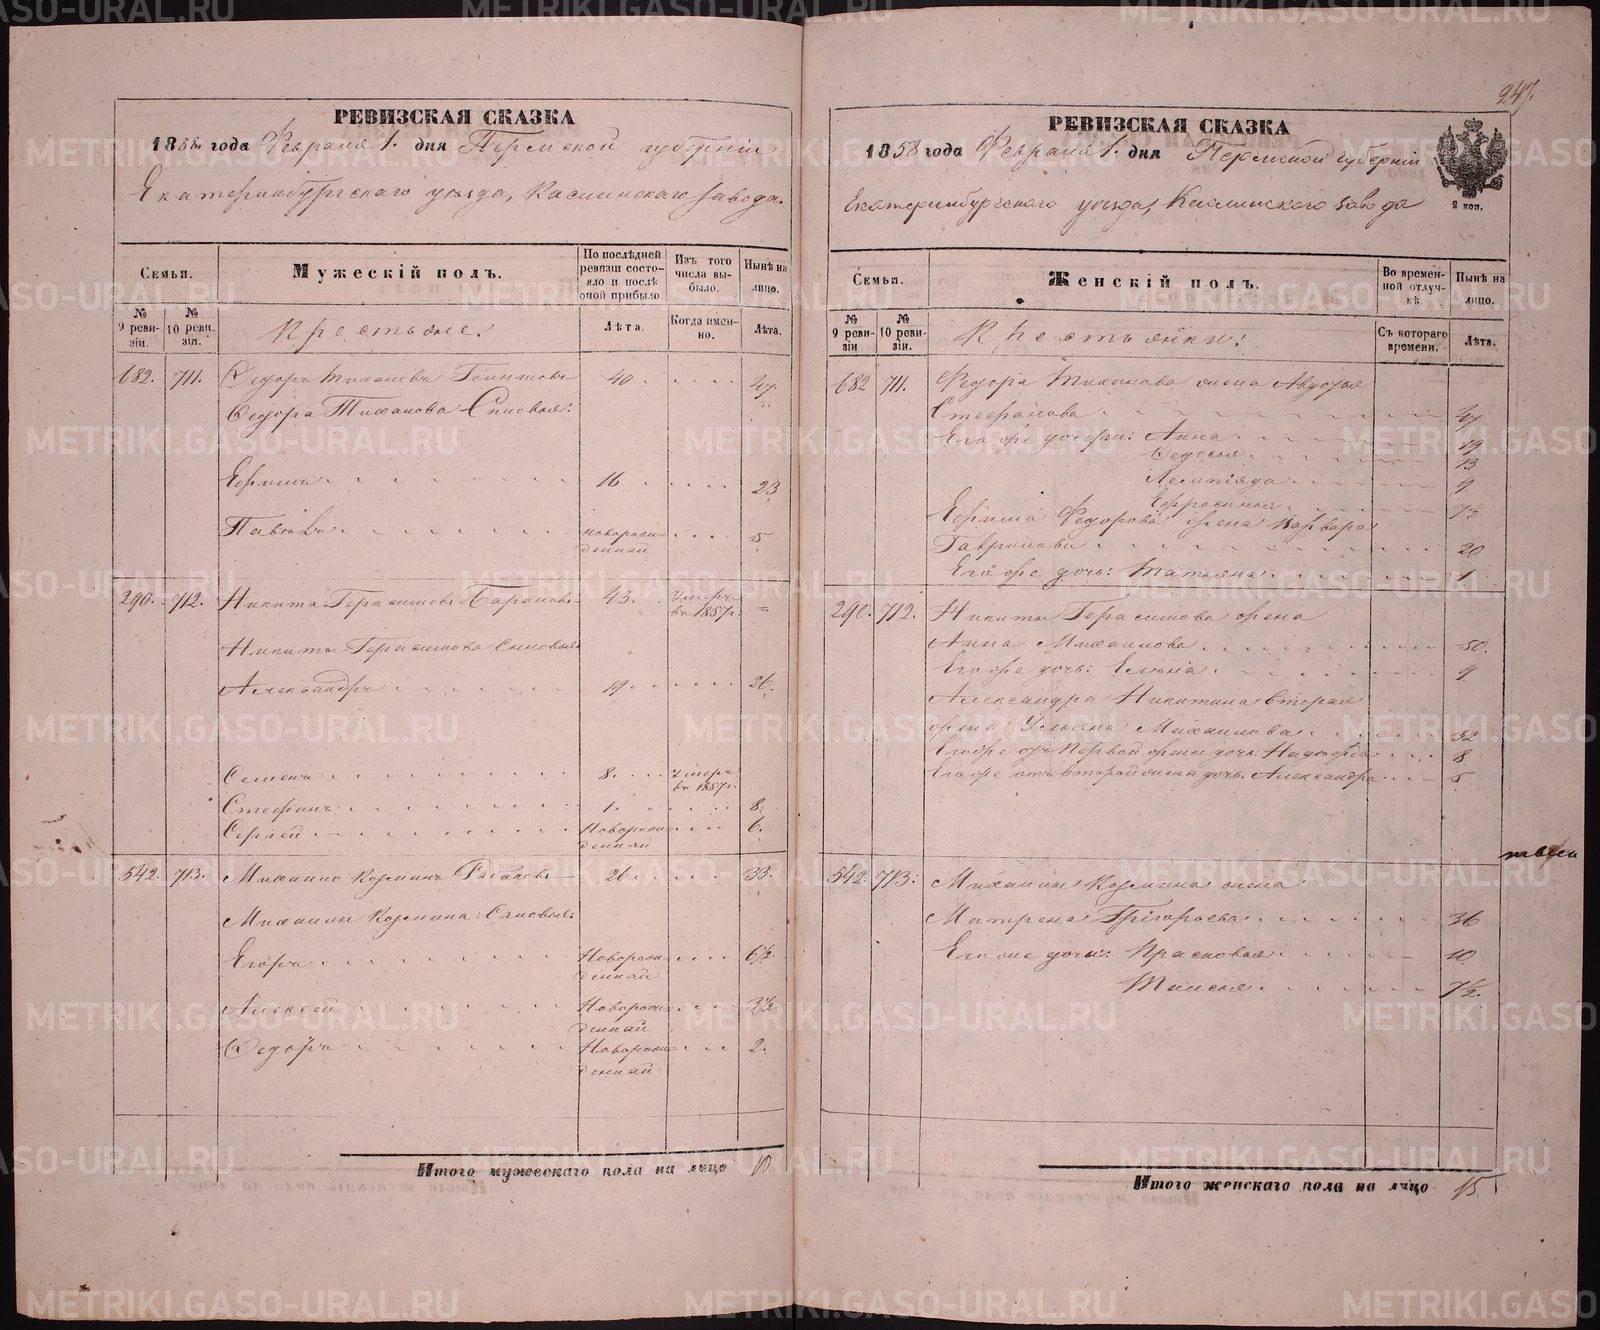 РЕВИЗСКАЯ СКАЗКА
1858 года Февраля 1. дня Пермской губерніи
Екатеринбургскаго уѣзда, Каслинскаго завода.
Семьи.
Мужескій полъ.
По послѣдней ревизіи состояло и послѣ оной прибыло.
Изъ того числа выбыло.
Нынѣ на лицо.
№ 9 ревизіи.
№ 10 ревизіи.
Крестьяне.
Лѣта.
Когда именно.
Лѣта.
682. 711. Ѳедоръ Тихановъ 40 47
Ѳедора Тиханова Сыновья:
Ефимъ 16 23
Павелъ новорожденный 5
290. 712. Никита Герасимовъ Барановъ 43. Умеръ въ 1857г. -
Никиты Герасимова Сыновья
Александръ 19 26.
Семенъ 8. Умеръ въ 1857г.
Стефанъ 1. 8.
Сергѣй Новорожденный 6.
542. 713. Михаило Козминъ Рыбаковъ 26 33.
Михаилы Козмина Сыновья:
Егоръ Новорожденный 6½
Алексѣй Новорожденный 3½
Ѳедоръ Новорожденный 2.
Итого мужескаго пола на лицо 10
247.
РЕВИЗСКАЯ СКАЗКА
1858 года Февраля 1. дня Пермской губерніи
Екатеринбургскаго уѣзда, Каслинскаго завода
2 коп.
Семьи.
Женскій полъ.
Во временной отлучкѣ.
Нынѣ на лицо.
№ 9 ревизіи
№ 10 ревизіи.
Крестьянки:
Съ котораго времени.
Лѣта.
682 711. Федора Тиханова жена Авдотья
Стефанова 47
Его же дочери: Анна 19
Ѳедосья 13
9.
Ефросинья
Ефима Федорова жена Варвара
Гаврилова 20
Его же дочь: Татьяна 1.
290. 712. Никиты Герасимова жена
Анна Михаилова 50.
Его же дочь: Елена 9
Александра Никитина вторая
жена Ульяна Михаилова 32
Его же отъ первой жены дочь: Надежда 8
Его же отъ второй жены дочь: Александра 5
542. 713. Михаилы Козмина жена
Матрена Григорьева 36
Его же дочи: Прасковья 10
Таисья 7½.
Итого женскаго пола на лицо 15.
METRIKI.GASO-URAL.RU